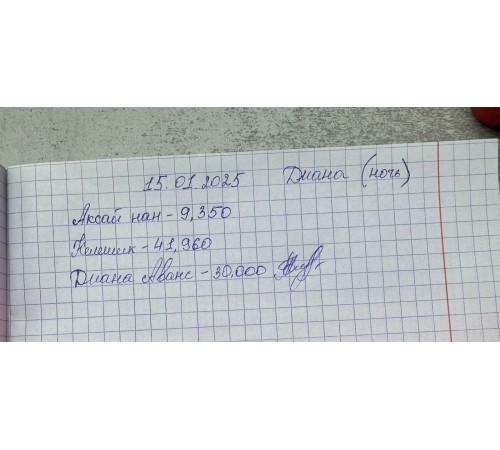 15.01.2025 Диана (ночь)
Аксай нан - 9,350
- 41,960
Диана Аванс - 30,000